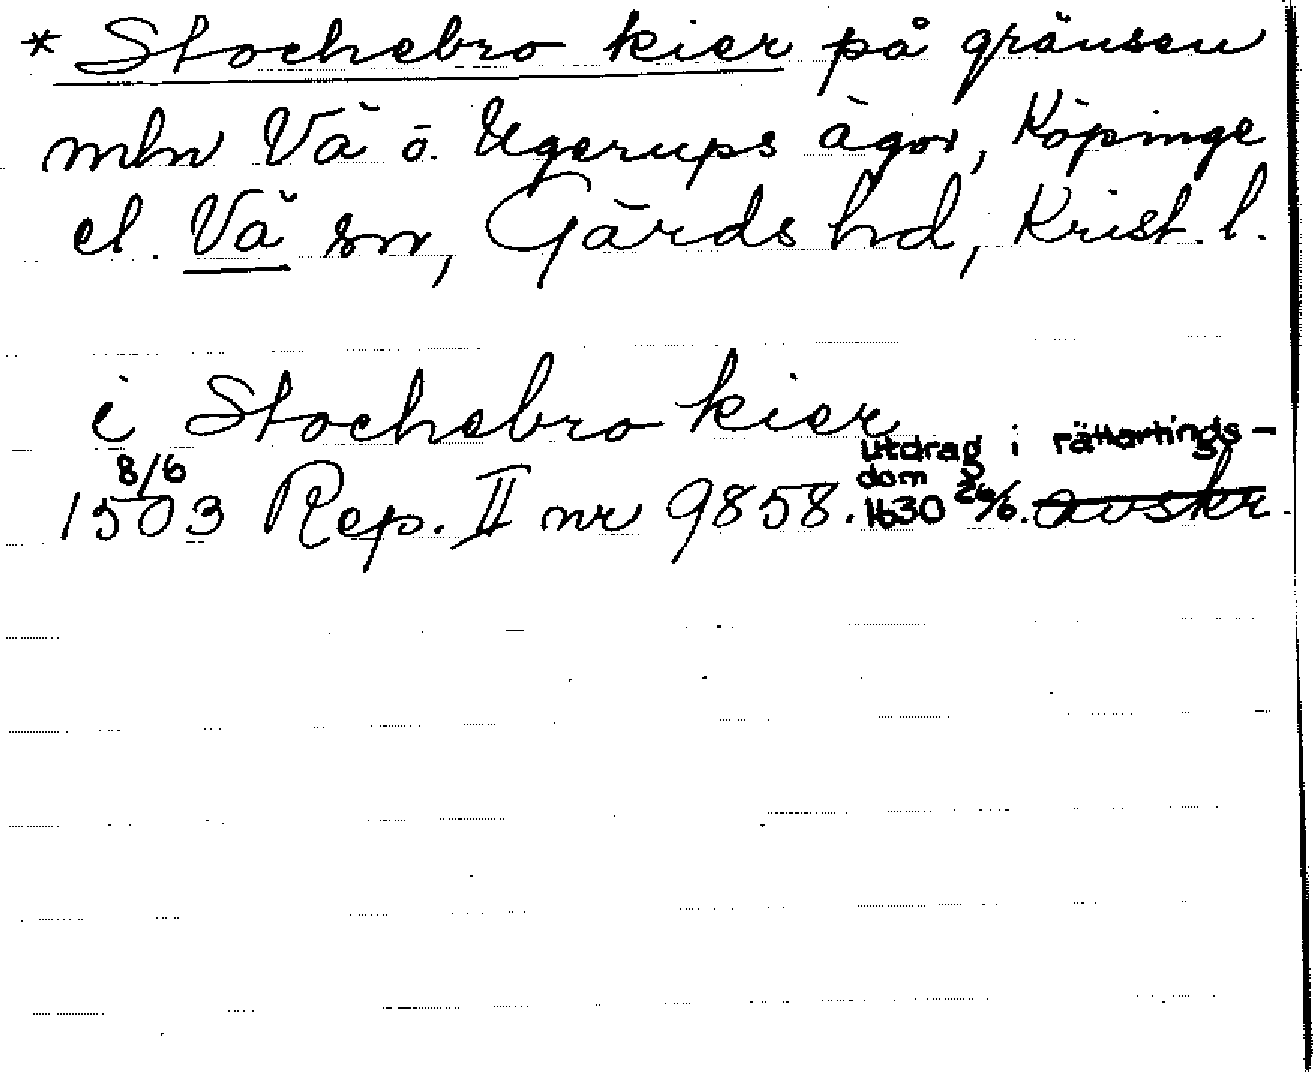 * Stochebro kier på gränsen
mln Vä o. Ugerups ägor, Köpinge
el. Vä sn, Gärds hd, Krist. l.
i Stochebro kier
8/6 utdrag i rättartings-
dom
1503 Rep. II nr 9858. 1630 26/6. avskr.